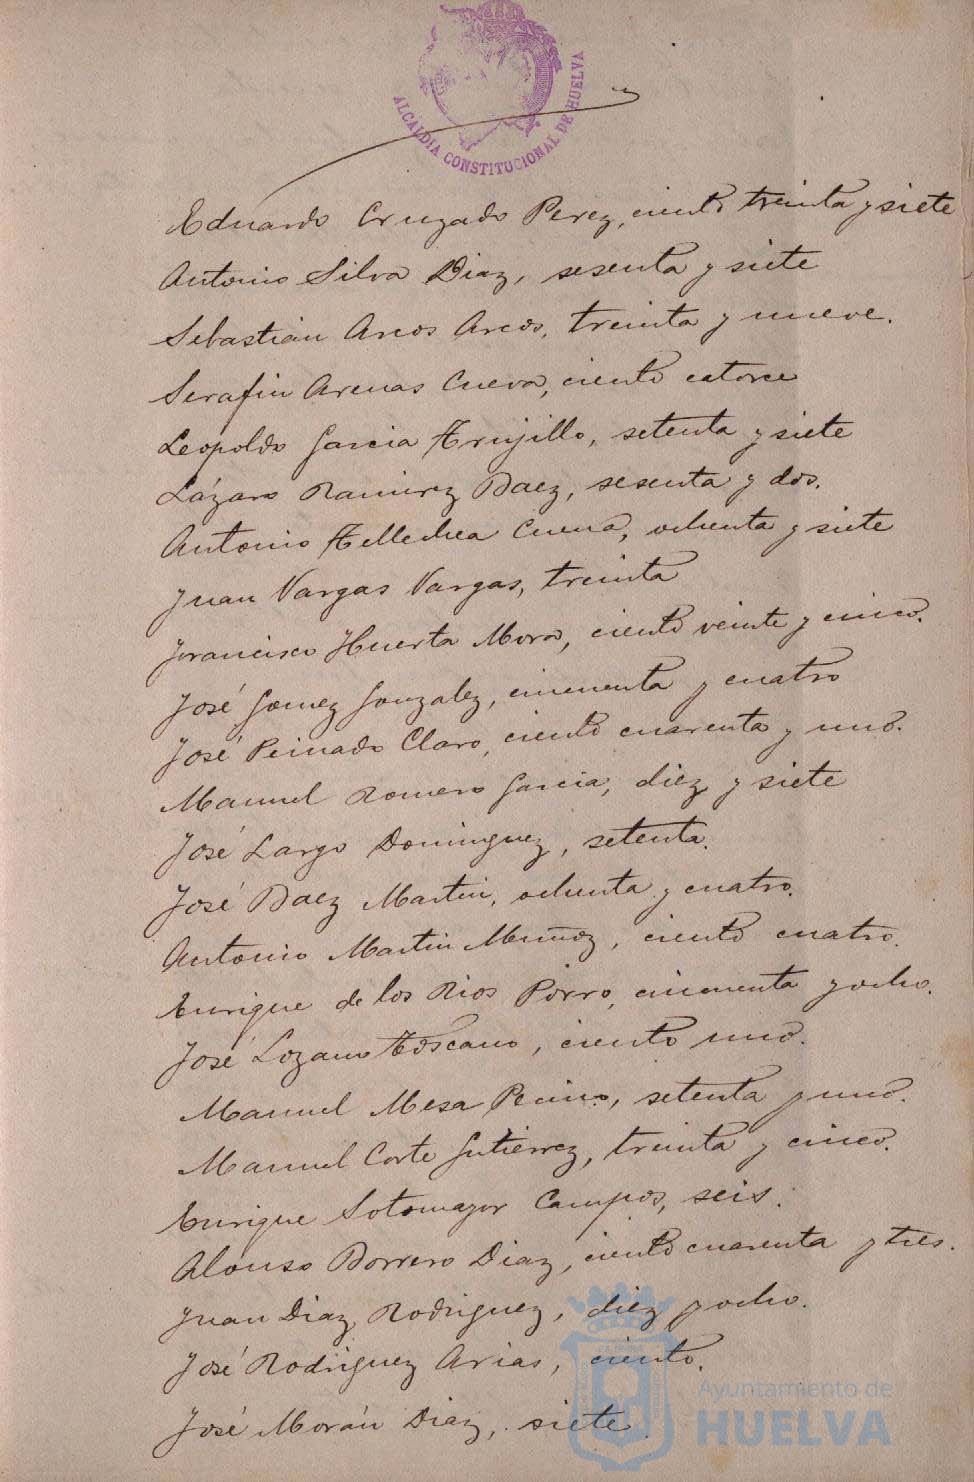 ALCALDIA CONSTITUCIONAL DE HUELVA
Eduardo Cruzado Perez, ciento treinta y siete
Antonio Silva Diaz, sesenta y siete
Sebastián Arcos Arcos, treinta y nueve.
Serafin Arenas Cueva, ciento catorce
Leopoldo Garcia Trujillo, setenta y siete
Lázaro Ramirez Baez, sesenta y dos.
Antonio Telledhea Cuena, ochenta y siete
Juan Vargas Vargas, treinta
Francisco Huerta Mora, ciento veinte y cinco.
José Gomez Gonzalez, cincuenta y cuatro
José Peinado Claro, ciento cuarenta y uno.
Manuel Romero Garcia, diez y siete
José Largo Dominguez, setenta.
José Baez Martin, ochenta y cuatro.
Antonio Martin Muñoz, ciento cuatro.
Enrique de los Rios Porro, cincuenta y ocho.
José Lozano Toscano, ciento uno.
Manuel Mesa setenta y uno.
Manuel Corte Gutiérrez, treinta y cinco.
Enrique Sotomayor Campos, seis.
Alonso Borrero Diaz, ciento cuarenta y tres.
Juan Diaz Rodriguez, diez y ocho.
José Rodriguez Arias, ciento.
José Morán Diaz, siete.
Ayuntamiento de
HUELVA